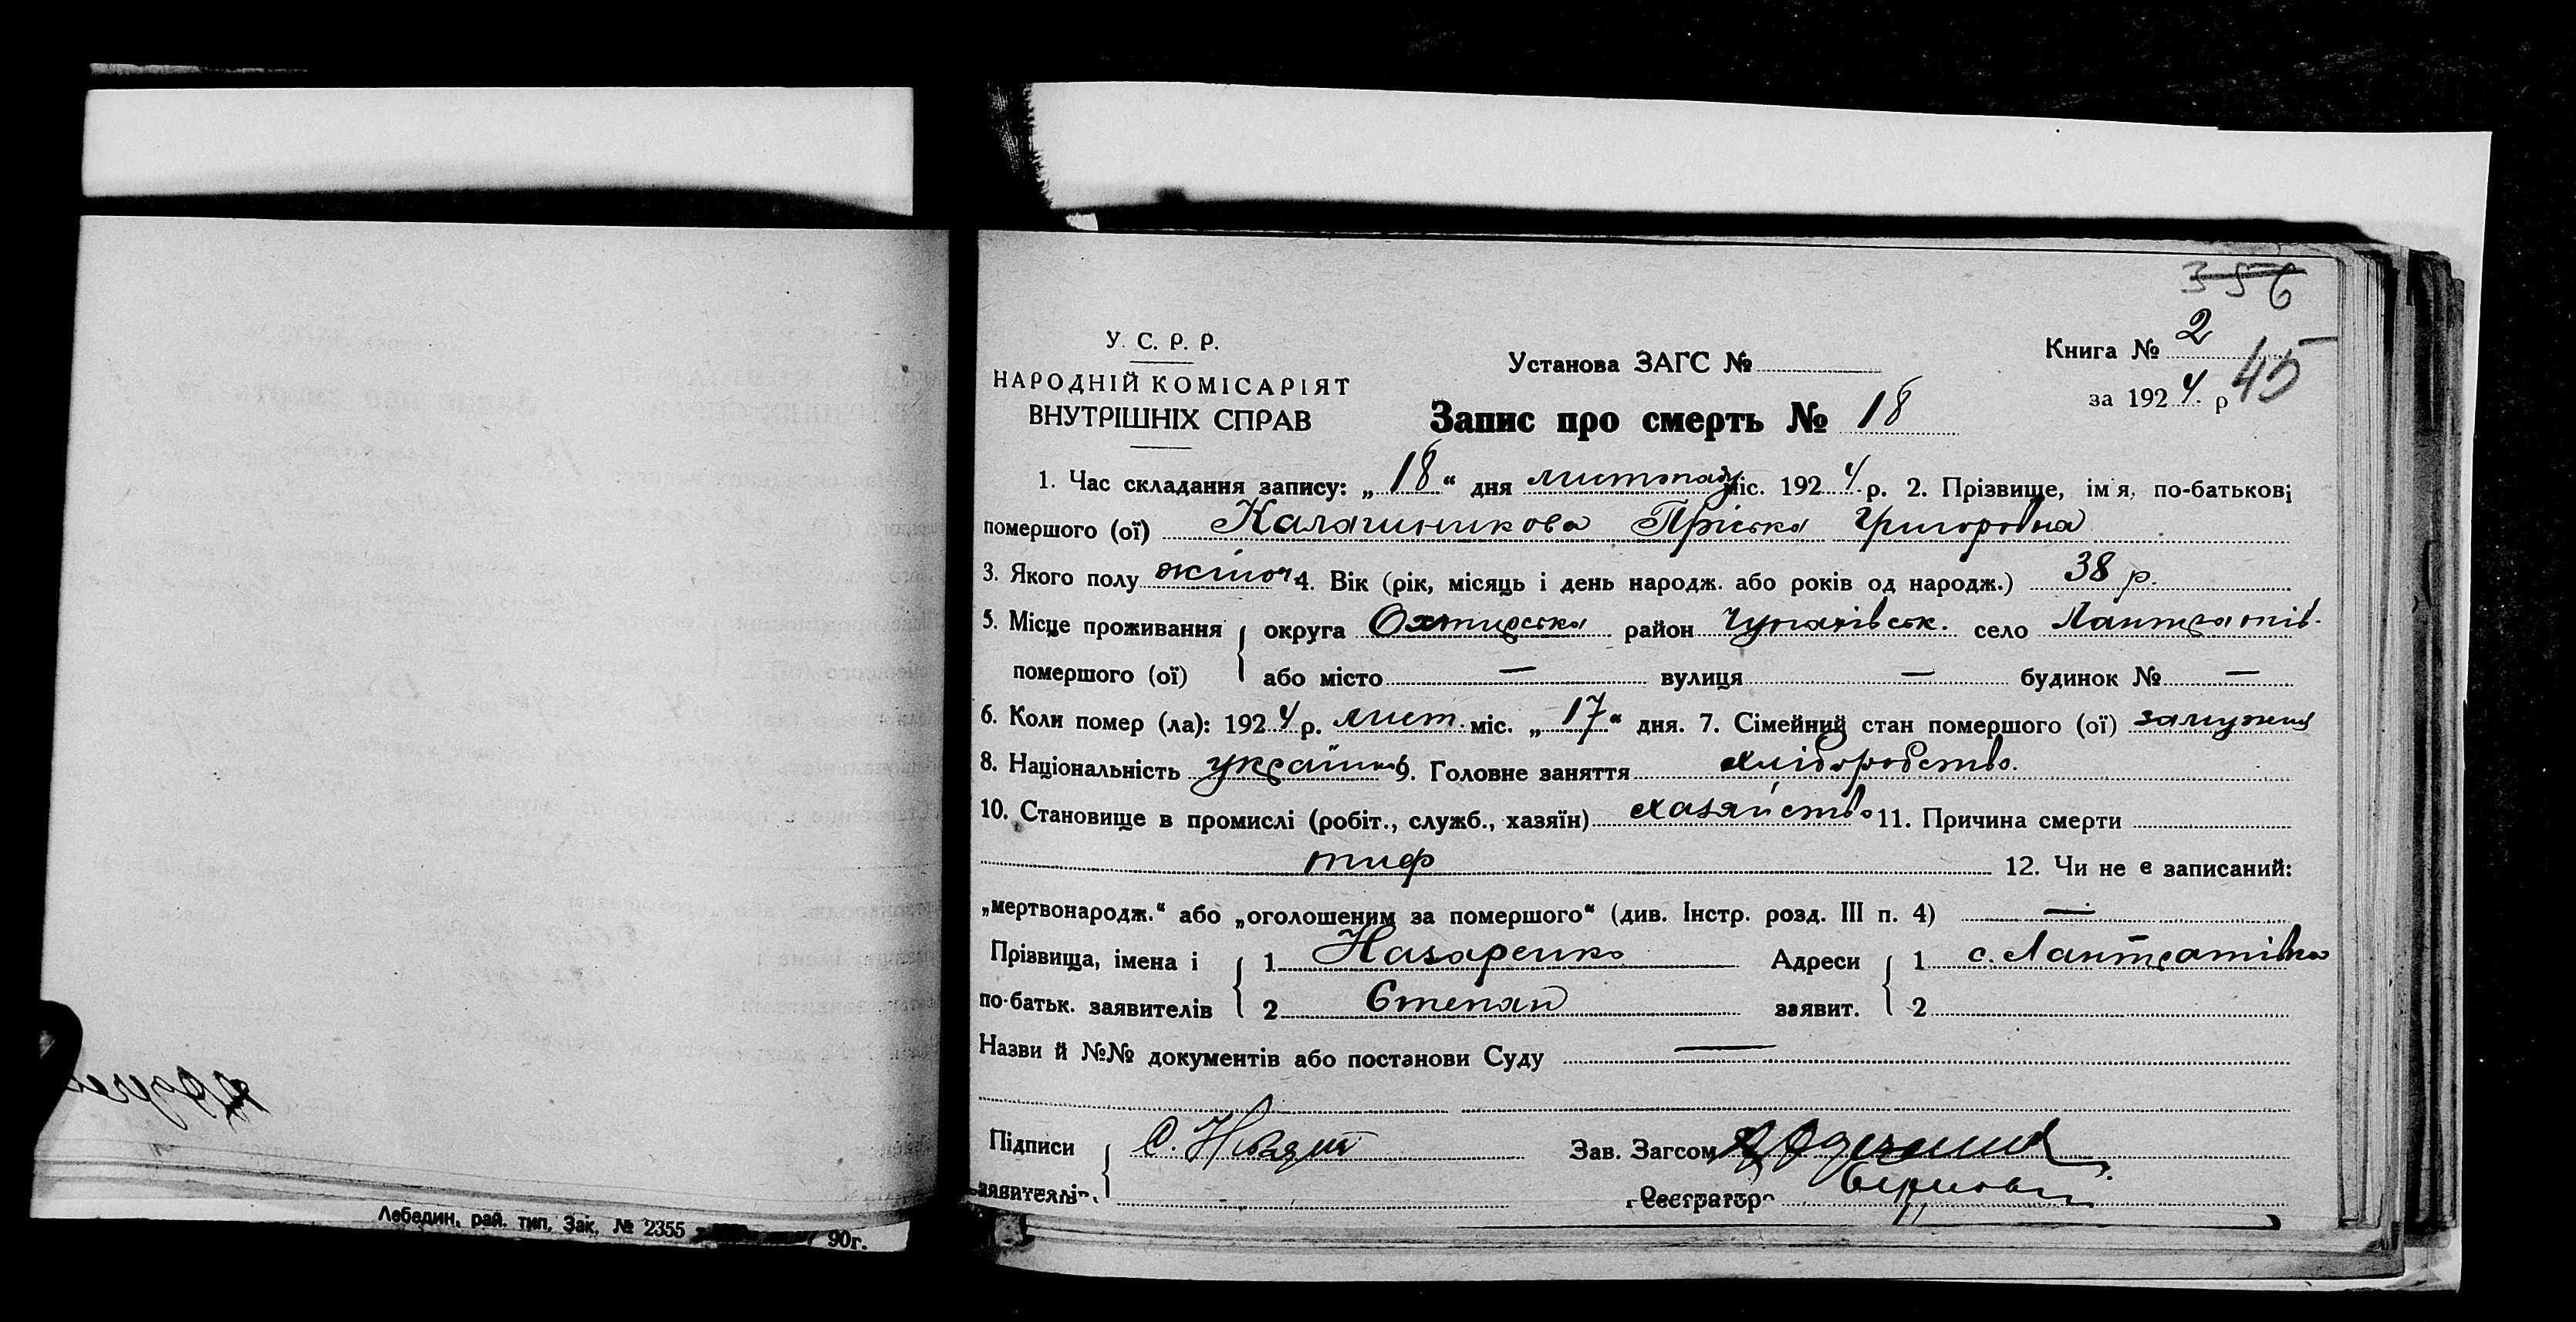 356
У. С. Р. Р.
НАРОДНІЙ КОМІСАРІЯТ
ВНУТРІШНІХ СПРАВ
Установа ЗАГС №
Книга № 2
45
за 1924 р
Запис про смерть № 18
1. Час складання запису: „18“ дня листопаду міс. 1924 р. 2. Прізвище, ім'я, по-батькові
помершого (ої) Калашникова Пріська Григоровна
3. Якого полу жіноч 4. Вік (рік, місяць і день народж. або років од народж.) 38 р.
5. Місце проживання округа Охтирська район Чупахівськ. село Лантратів.
помершого (ої) або місто — вулиця — будинок № —
6. Коли помер (ла): 1924 р. лист. міс. „17“ дня. 7. Сімейний стан помершого (ої) замужня
8. Національність 9. Головне заняття хліборобство.
10. Становище в промислі (робіт., служб., хазяїн) хазяйство 11. Причина смерти
тиф 12. Чи не є записаний:
„мертвонародж.“ або „оголошеним за помершого“ (див. Інстр. розд. III п. 4) —
Прізвища, імена і 1 Назаренко Адреси 1 с. Лантратівка
по-батьк. заявителів 2 Степан заявит. 2
Назви й №№ документів або постанови Суду —
Підписи Зав. Загсом
заявителів. Реєстратор
Лебедин. рай. тип. Зак. № 2355 90г.